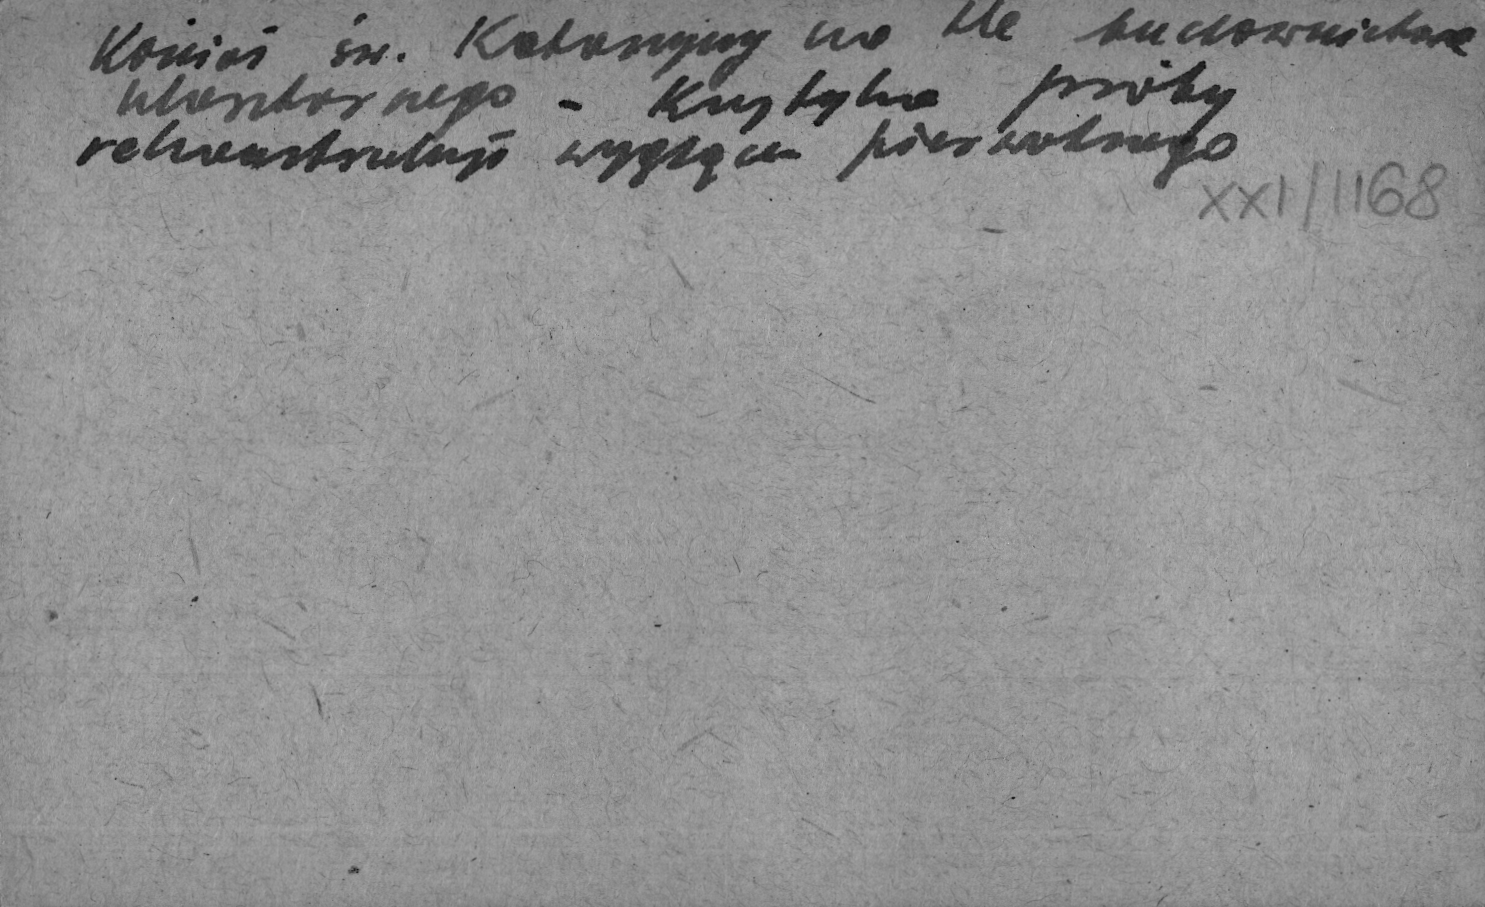 Kościół św. Katarzyny na tle budownictwa
klasztornego - Krytyka próby
rekonstrukcji wyglądu pierwotnego
XXI/1168